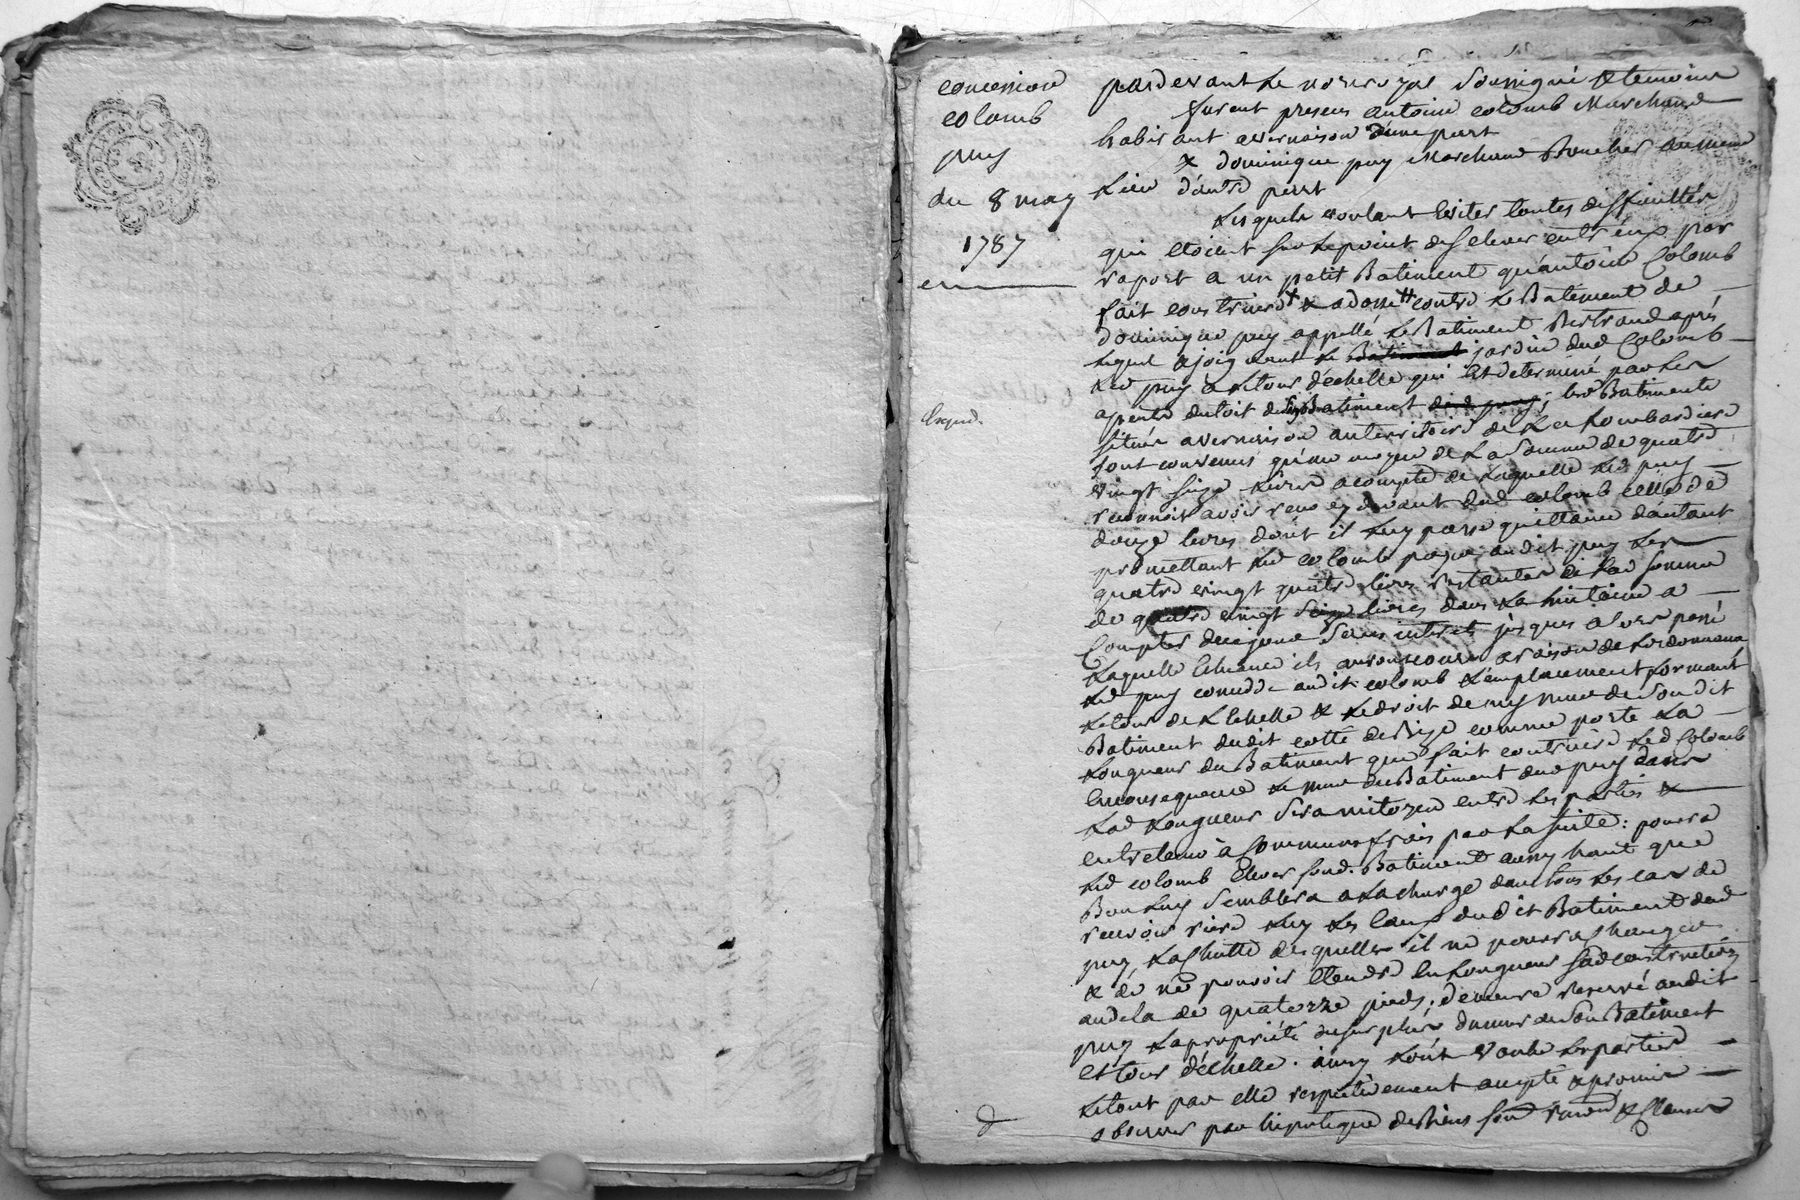 concession
colomb
puy
du 8 may
1787
pardevant le no.re royal soussigné & temoins
furent presens antoine colomb Marchand
habitant a vernaison d'une part
& dominique puy Marchand Boucher au meme
Lieu d'autre part
Lesquels voulant Eviter toutes difficultés
qui etoient sur le point de s'elever entr'eux par
raport a un petit Batiment qu'antoine Colomb
fait construire & adossé contre le Batiment de
dominique puy appellé le Batiment Bertrand après
lequel ajoignant le Batiment jardin dud Colomb
led puy a le tour d'echelle qui est determiné par les
apents du toit du Batiment dud puy; les Batiments
situés a vernaison au territoire de La Lombardiere
sont convenus qu'au moyen de La somme de quatre
vingt seize Livres acompte de laquelle led puy
reconnoit avoir recu cy devant dud colomb celle de
douze livres dont il luy passe quittance d'autant
promettant led colomb payer audit puy les
quatre vingt quatre livres restantes de lad somme
de quatre vingt seize livres dans la huitaine a
Compter de ce jour sans interets jusques alors passé
Laquelle Echeance ils auront cours a raison de L'ordonnance
led puy concede audit colomb L'emplacement formant
le tour de L'Echelle & le droit de my mur de son dit
Batiment dudit cotté de Bize comme porte La
Longueur du Batiment que fait contruire led Colomb
En consequence le mur du Batiment dud puy dans
Lad Longueur sera mitoyen entre les parties &
entretenu à communs frais par La suite: pourra
led colomb Elever sond. Batiment aussy haut que
Bon luy semblera a La charge dans tous les cas de
recevoir riere luy les eaux dudit Batiment dud
puy, La chutte desquelles il ne pourra changer
& de ne pouvoir Etendre En Longueur sad construction
audela de quatorze pieds; demeure reservé audit
puy La propriété du surplus du mur de son Batiment
et tour d'echelle. ainsy L'ont voulu les parties
le tout par elle respectivement accepté & promis
observer par hipoteque de Biens